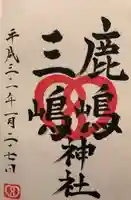 鹿嶋三嶋神社
平成三十一年一月二十七日